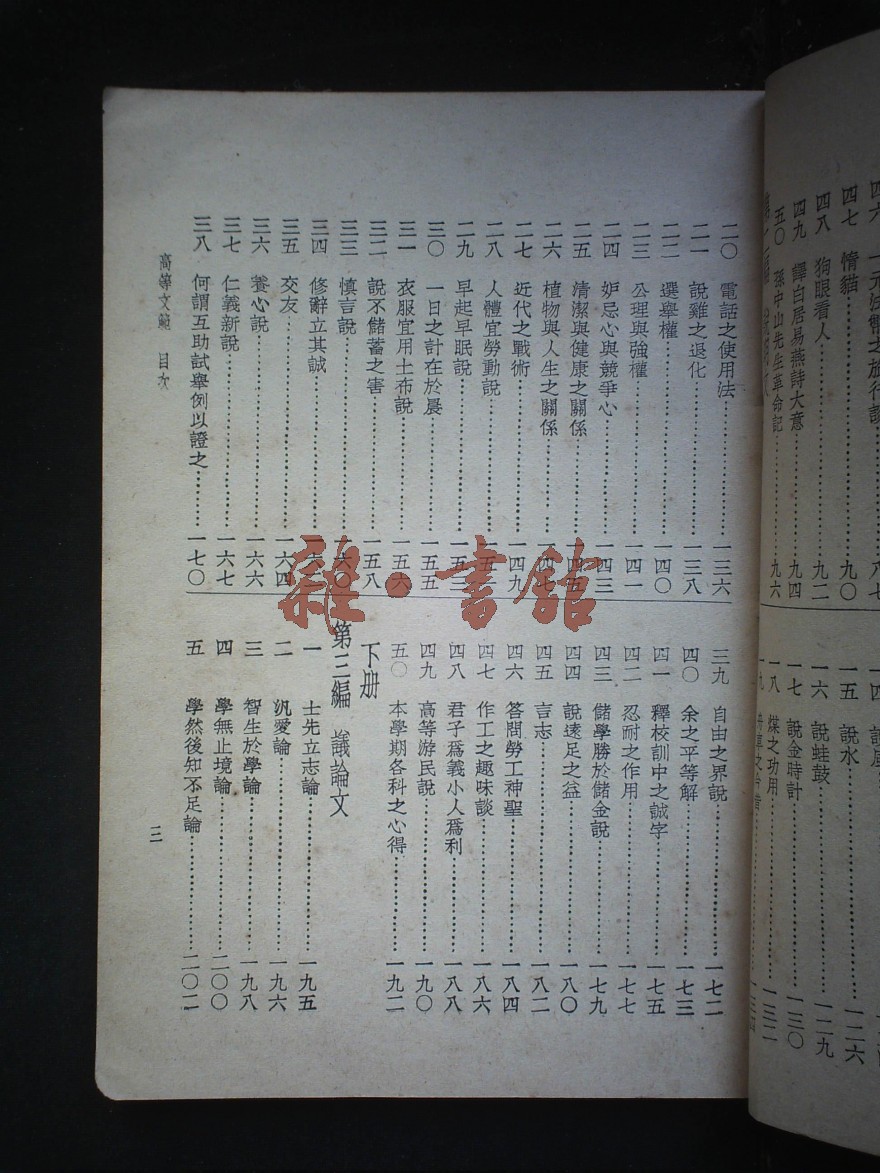 四七 惰貓……九〇
四八 狗眼看人……九二
四九 譯白居易燕詩大意……九四
五〇 孫中山先生革命記……九六
一五 說水……一二六
一六 說蛙鼓……一二九
一七 說金時計……一三〇
一八 煤之功用……一三二
二〇 電話之使用法……一三六
二一 說雞之退化……一三八
二二 選舉權……一四〇
二三 公理與強權……一四一
二四 妒忌心與競爭心……一四三
二五 清潔與健康之關係……一四五
二六 植物與人生之關係……一四七
二七 近代之戰術……一四九
二八 人體宜勞動說……一五
二九 早起早眠說……一五三
三〇 一日之計在於晨……一五五
三一 衣服宜用土布說……一五六
三二 說不儲蓄之害……一五八
三三 慎言說……一六〇
三四 修辭立其誠……一六
三五 交友……一六四
三六 養心說……一六六
三七 仁義新說……一六七
三八 何謂互助試舉例以證之……一七〇
三九 自由之界說……一七二
四〇 余之平等解……一七三
四一 釋校訓中之誠字……一七五
四二 忍耐之作用……一七七
四三 儲學勝於儲金說……一七九
四四 說遠足之益……一八〇
四五 言志……一八二
四六 答問勞工神聖……一八四
四七 作工之趣味談……一八六
四八 君子爲義小人爲利……一八八
四九 高等游民說……一九〇
五〇 本學期各科之心得……一九二
下册
第三編 議論文
一 士先立志論……一九五
二 汎愛論……一九六
三 智生於學論……一九八
四 學無止境論……二〇〇
五 學然後知不足論……二〇二
高等文範 目次
三
雜·書館